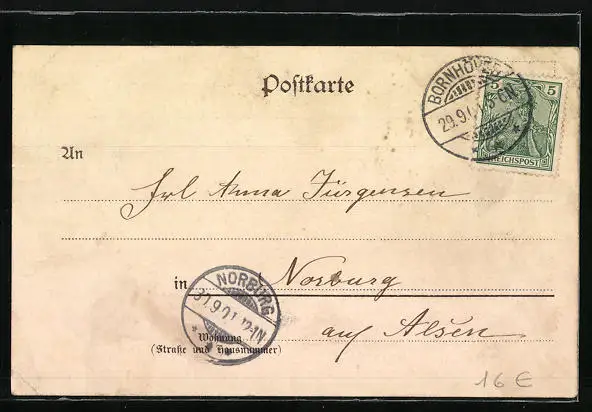 Postkarte
BORNHÖVED
29.9.01 5-6N
5 5
REICHSPOST
An
Frl Anna Jürgensen
in Norburg
NORBURG
30.9.01 12-1N
auf Alsen
Wohnung
(Straße und Hausnummer)
16 €